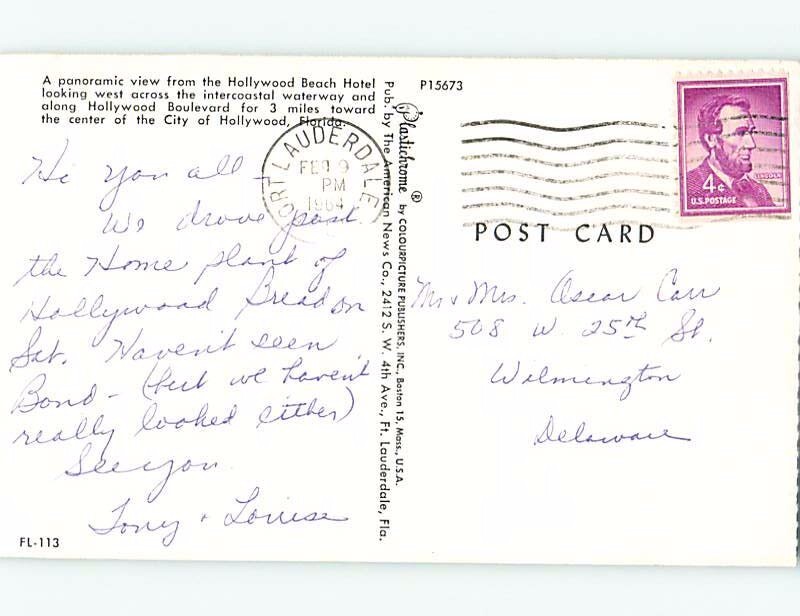 A panoramic view from the Hollywood Beach Hotel
looking west across the intercoastal waterway and
along Hollywood Boulevard for 3 miles toward
the center of the City of Hollywood, Florida.
Hi you all -
We drove past
the Home plant of
Hollywood Bread on
Sat. Haven't seen
Bond - (but we haven't
really looked either)
See you
Tony + Louise
FL-113
Plastichrome ® by COLOURPICTURE PUBLISHERS, INC., Boston 15, Mass., U.S.A.
Pub. by The American News Co., 2412 S. W. 4th Ave., Ft. Lauderdale, Fla.
P15673
FORT LAUDERDALE
FEB 9
PM
1964
LINCOLN
4¢
U.S. POSTAGE
POST CARD
Mr & Mrs. Oscar Carr
508 W. 25th St.
Wilmington
Delaware